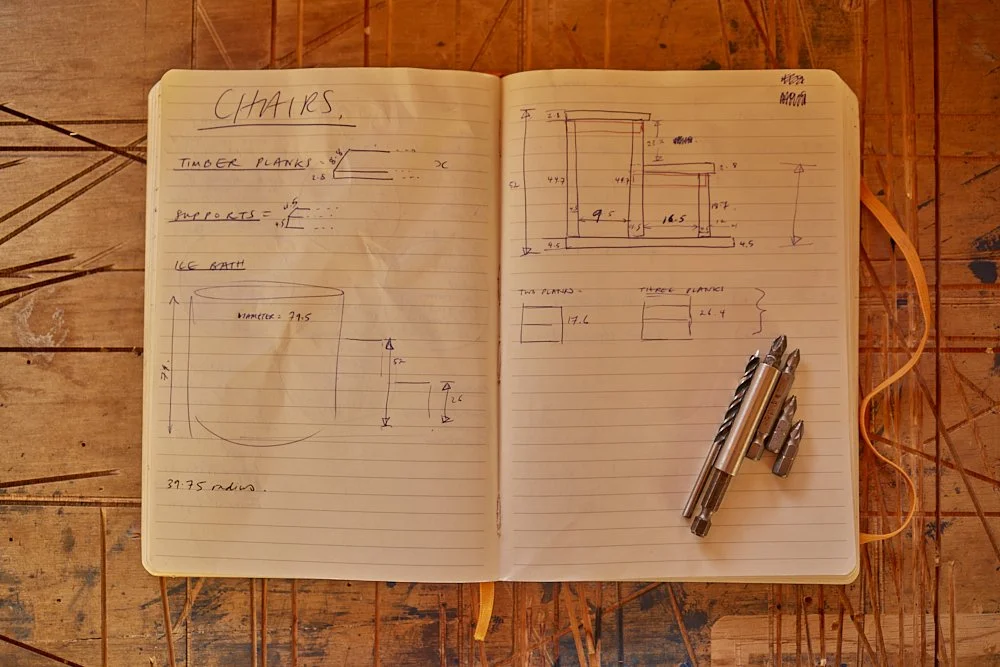 CHAIRS.
TIMBER PLANKS = 8.8
2.8
x
SUPPORTS = 4.5
4.5
ICE BATH
DIAMETER = 79.5
79.
52
26
39.75 radius.
2.8
52
44.7
44.7
2.8
9.5
16.5
4.5
4.5
4.5
TWO PLANKS =
17.6
THREE PLANKS
26.4